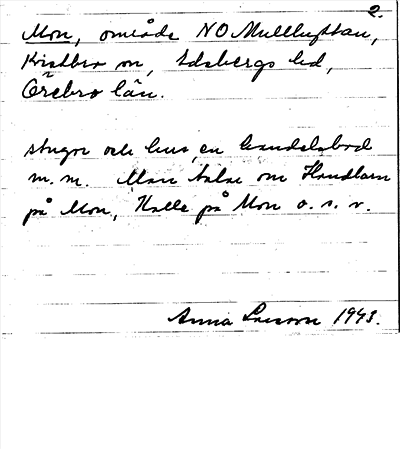 2.
Mon, område NO Mullhyttan,
Kvistbro sn, Edsbergs hd,
Örebro län.
stugor och hus, en handelsbod
m.m. Man talar om Handlarn
på Mon, Kalle på Mon o.s.v.
Anna Larsson 1943.